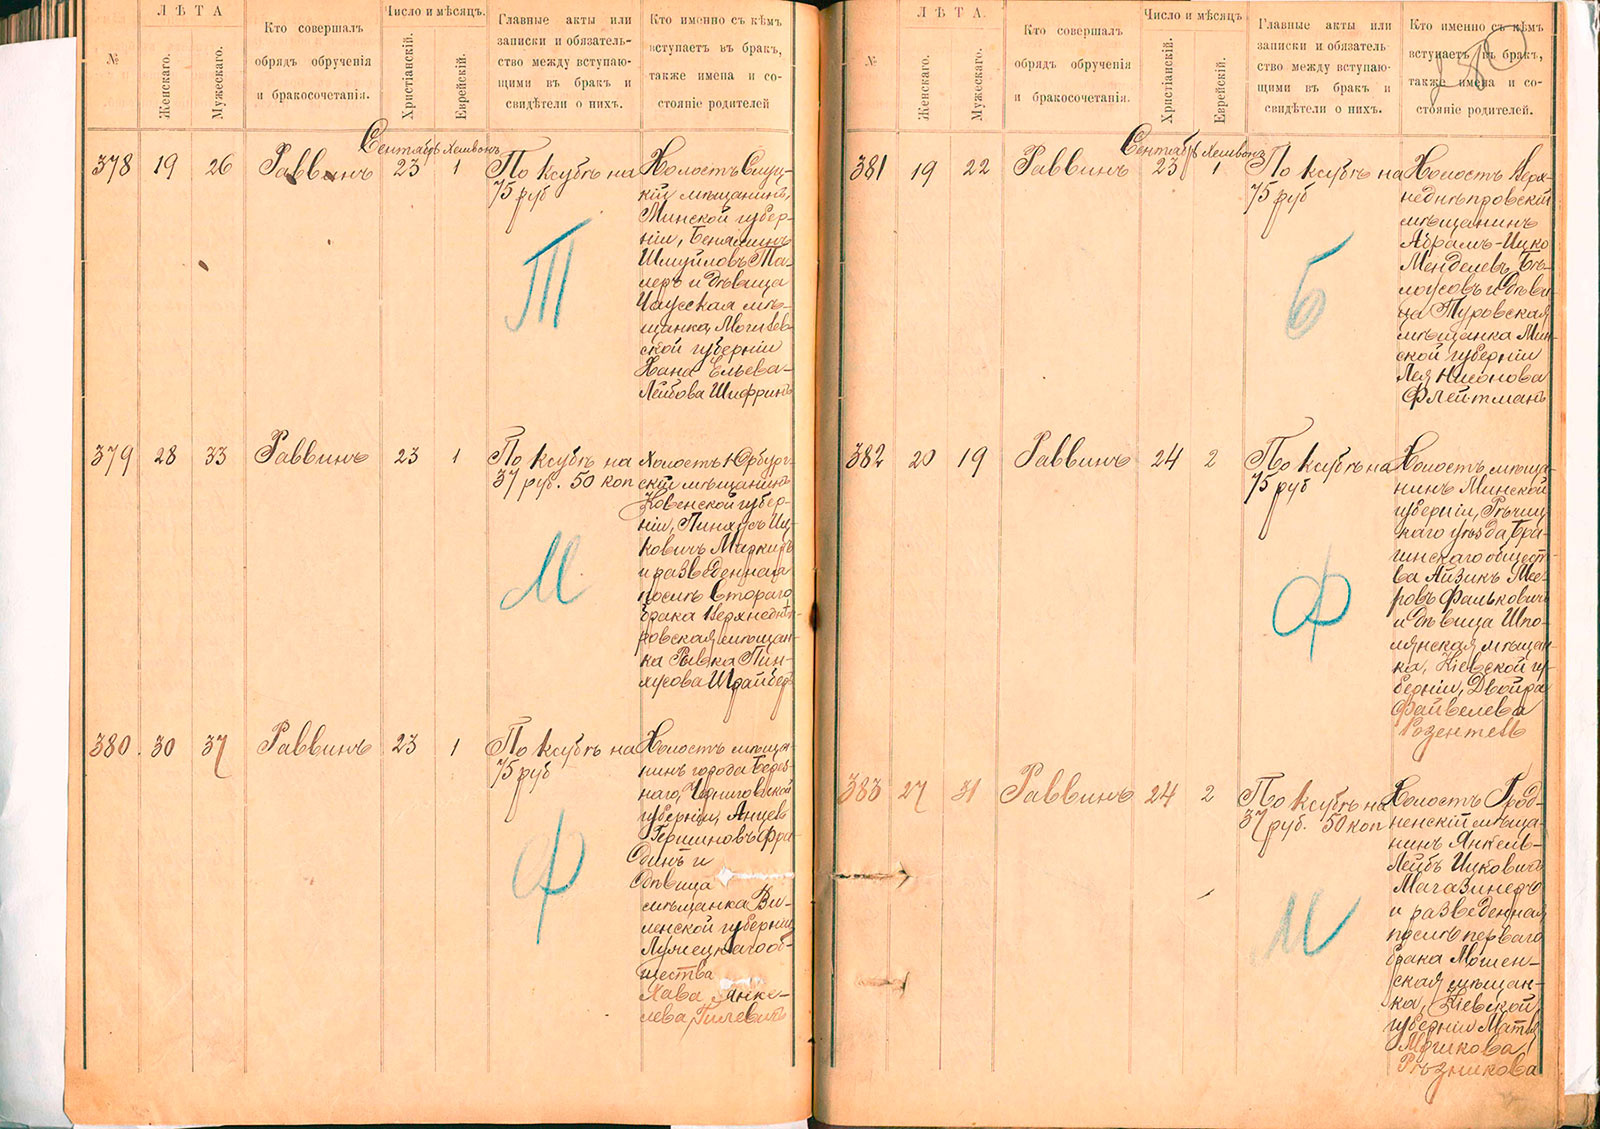 №
ЛѢТА
Женскаго.
Мужескаго.
Кто совершалъ
обрядъ обрученія
и бракосочетанія.
Число и мѣсяцъ.
Христіанскій.
Еврейскій.
Главные акты или
записки и обязатель-
ство между вступаю-
щими въ бракъ и
свидѣтели о нихъ.
Кто именно съ кѣмъ
вступаетъ въ бракъ,
также имена и со-
стояніе родителей
Сентябрь Хешвонъ
378 19 26 Раввинъ 23 1
По ксубѣ на
75 руб
Т
Холостъ Слуц-
кій мѣщанинъ,
Минской губер-
ніи, Беньяминъ
Шмуйловъ
и дѣвица
Чаусская мѣ-
щанка, Могилев-
ской губерніи
Хана Ельева-
Лейбова Шифринъ
379 28 33 Раввинъ 23 1
По ксубѣ на
37 руб. 50 коп
М
Холостъ Юрбург-
скій мѣщанинъ
Ковенской губер-
ніи, Пинхусъ Иц-
ковичъ
и разведенная
послѣ втораго
брака Верхнеднѣп-
ровская мѣщан-
ка Рывка Пин-
хусова Шрайберъ
380. 30 37 Раввинъ 23 1
По ксубѣ на
75 руб
Ф
Холостъ мѣща
нинъ города Берез-
наго, Черниговской
губерніи, Анцев
Гершиновъ Фра
динъ и
дѣвица
мѣщанка Ви-
ленской губерніи
об-
щества
Хава Янке-
лева,
№
ЛѢТА.
Женскаго.
Мужескаго.
Кто совершалъ
обрядъ обрученія
и бракосочетанія.
Число и мѣсяцъ
Христіанскій.
Еврейскій.
Главные акты или
записки и обязатель-
ство между вступаю-
щими въ бракъ и
свидѣтели о нихъ.
Кто именно съ кѣмъ
вступаетъ въ бракъ,
также имена и со-
стояніе родителей.
Сентябрь Хешвонъ
381 19 22 Раввинъ 23 1
По ксубѣ на
75 руб
Б
Холостъ Верх-
неднѣпровскій
мѣщанинъ
Абрамъ-Ицко
Менделевъ Бѣ-
лоусовъ и дѣви-
ца Туровская
мѣщанка Мин-
ской губерніи
Лея Нисонова
Флейтманъ
382 20 19 Раввинъ 24 2
По ксубѣ на
75 руб
Ф
Холостъ, мѣща-
нинъ Минской
губерніи, Рѣчиц-
каго уѣзда Бра-
гинскаго общест-
ва Айзикъ Мее-
ровъ Фальковичъ
и дѣвица Шпо-
лянская мѣщан-
ка, Кіевской гу-
берніи, Двойра
Файвелева
383 27 31 Раввинъ 24 2
По ксубѣ на
37 руб. 50 коп
М
Холостъ Грод-
ненскій мѣща-
нинъ Янкель-
Лейбъ Ицковичъ
Магазинеръ
и разведенная
послѣ перваго
брака Мошен-
ская мѣщан-
ка, Кіевской
губерніи Матля
Резникова